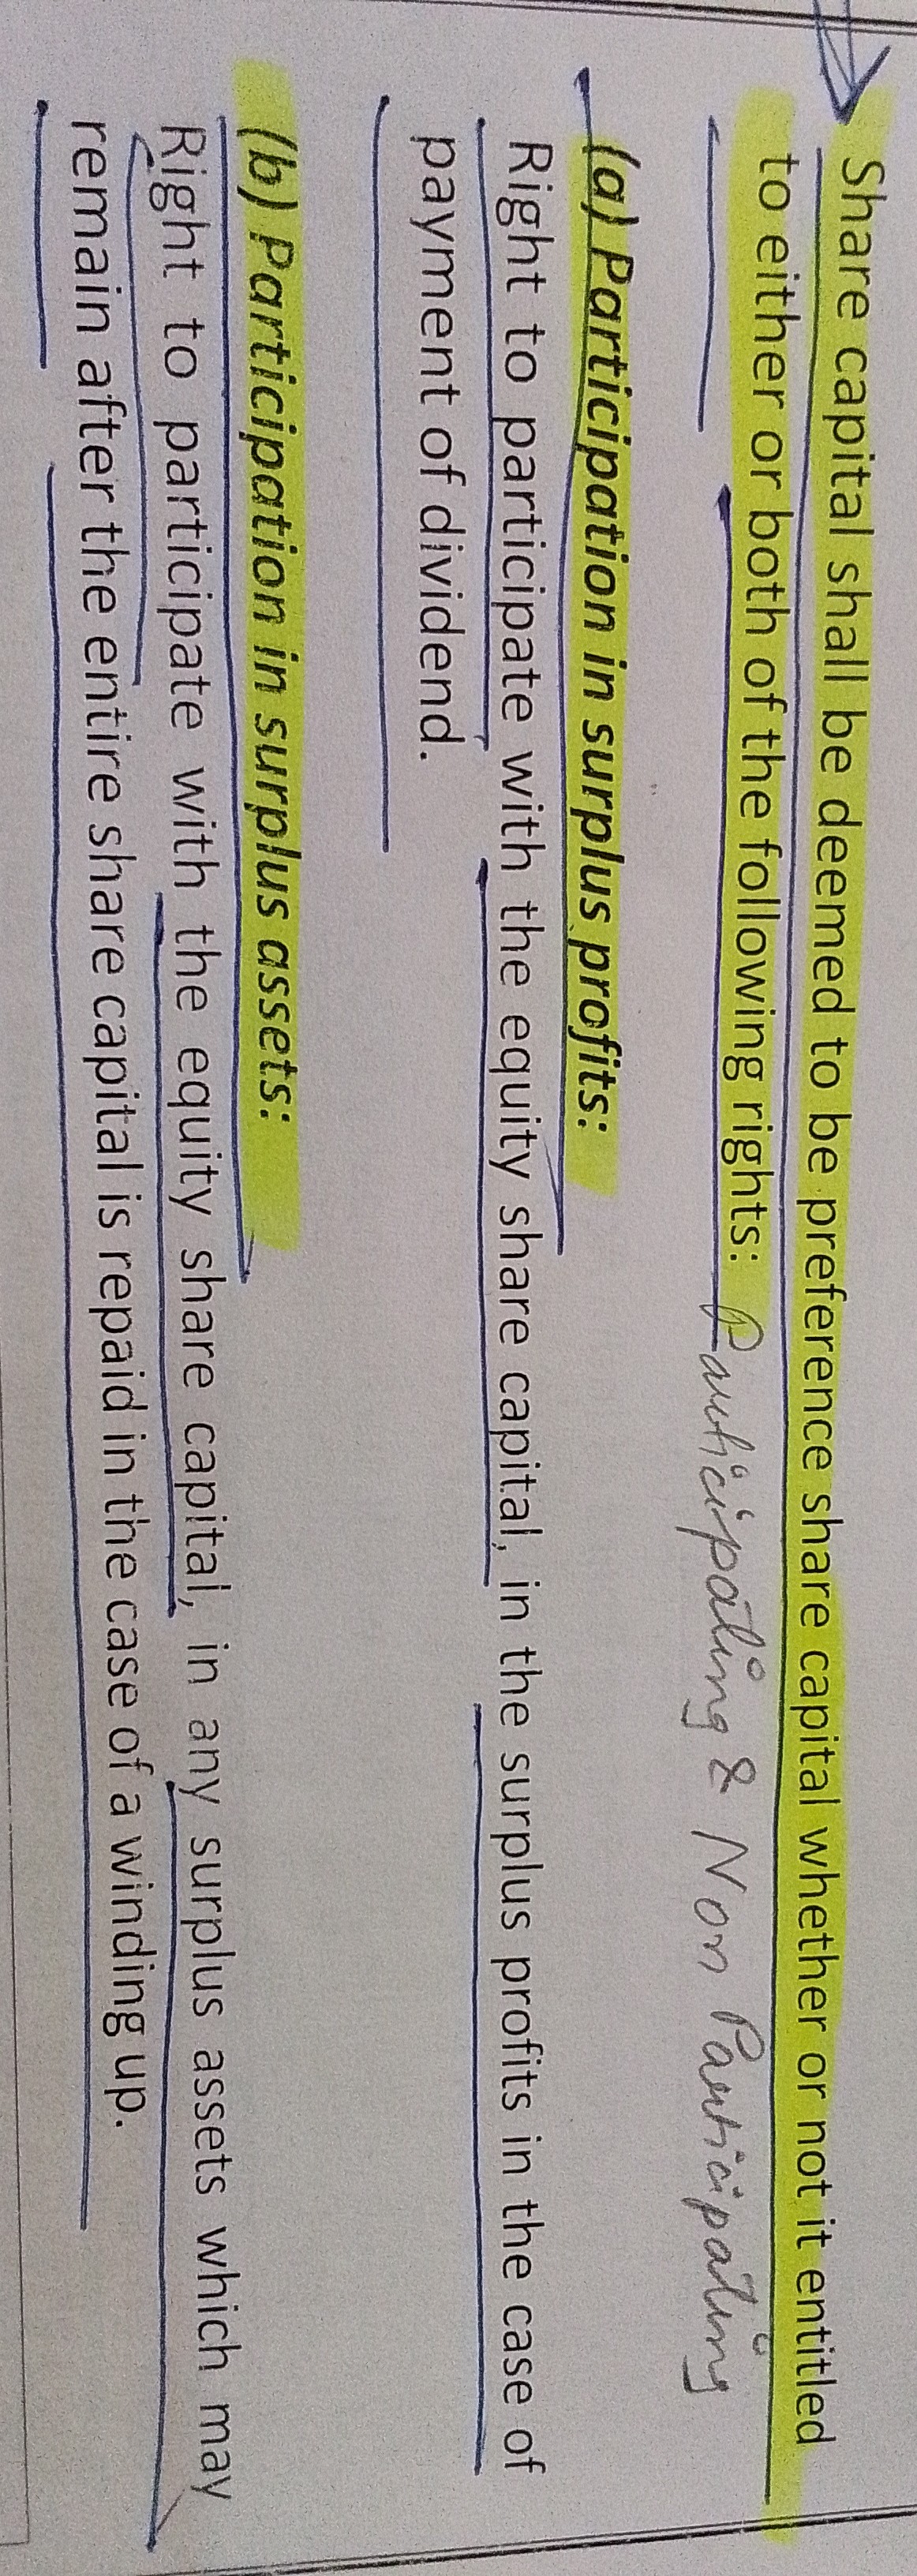 Share capital shall be deemed to be preference share capital whether or not it entitled
to either or both of the following rights: Participating & Non Participating
(a) Participation in surplus profits:
Right to participate with the equity share capital, in the surplus profits in the case of
payment of dividend.
(b) Participation in surplus assets:
Right to participate with the equity share capital, in any surplus assets which may
remain after the entire share capital is repaid in the case of a winding up.